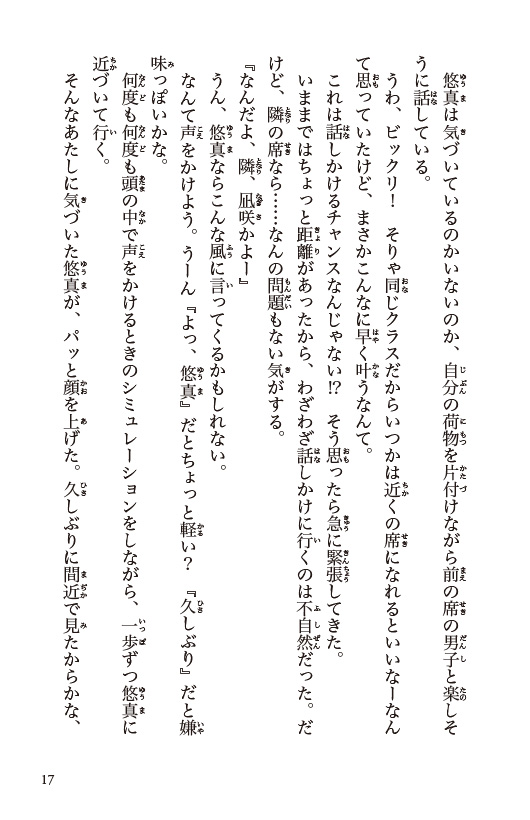 悠真は気づいているのかいないのか、自分の荷物を片付けながら前の席の男子と楽しそ
うに話している。
うわ、ビックリ！　そりゃ同じクラスだからいつかは近くの席になれるといいなーなん
て思っていたけど、まさかこんなに早く叶うなんて。
これは話しかけるチャンスなんじゃない!?　そう思ったら急に緊張してきた。
いままではちょっと距離があったから、わざわざ話しかけに行くのは不自然だった。だ
けど、隣の席なら……なんの問題もない気がする。
『なんだよ、隣、凪咲かよー』
うん、悠真ならこんな風に言ってくるかもしれない。
なんて声をかけよう。うーん『よっ、悠真』だとちょっと軽い？　『久しぶり』だと嫌
味っぽいかな。
何度も何度も頭の中で声をかけるときのシミュレーションをしながら、一歩ずつ悠真に
近づいて行く。
そんなあたしに気づいた悠真が、パッと顔を上げた。久しぶりに間近で見たからかな、
17